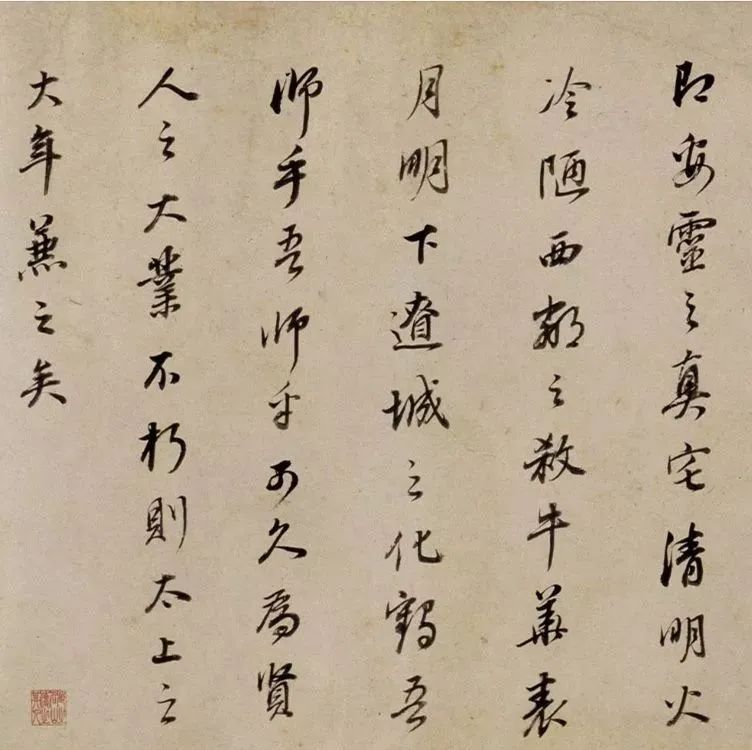 即安靈之真宅清明火
冷陋西鄰之殺牛華表
月明下遼城之化鶴吾
師乎吾師乎可久為賢
人之大業不朽則太上之
大年兼之矣